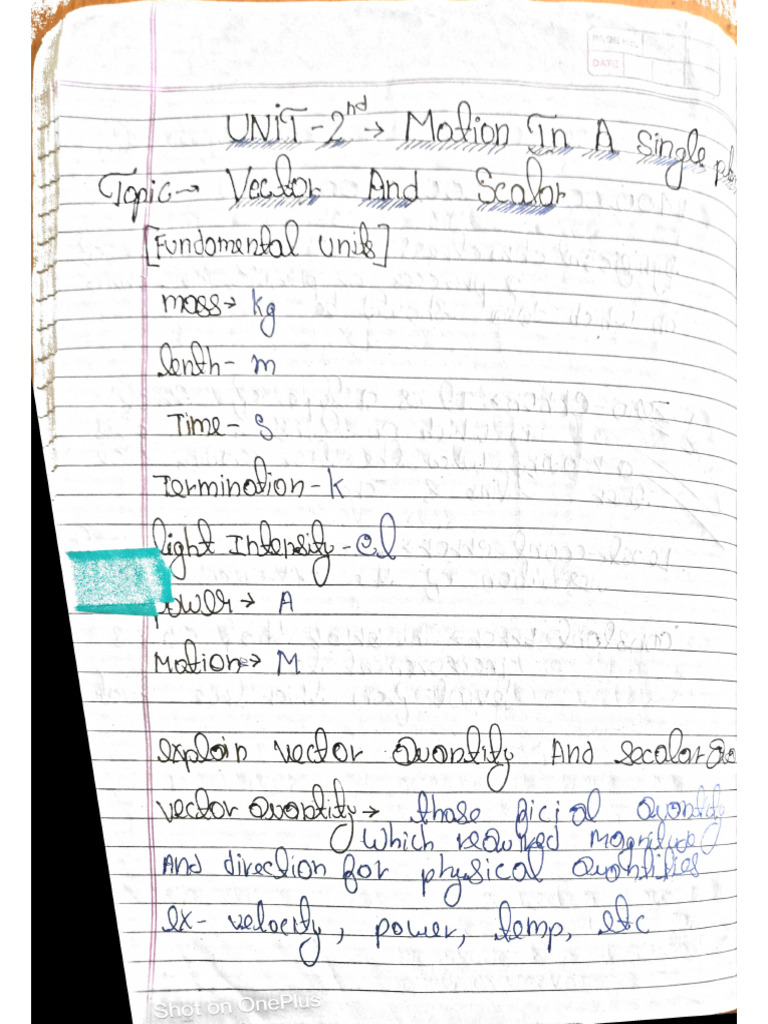 DATE
UNIT-2nd → Motion In A Single
Topic → Vector And Scalar
[Fundamental units]
mass → kg
lenth - m
Time - S
Termination - k
light Intensity - cd
power → A
Motion → M
explain vector Quantity And secalar
vector Quantity → those picial Quantity
which required Magnitude
And direction for physical Quantities
ex- velocity, power, temp, etc
Shot on OnePlus